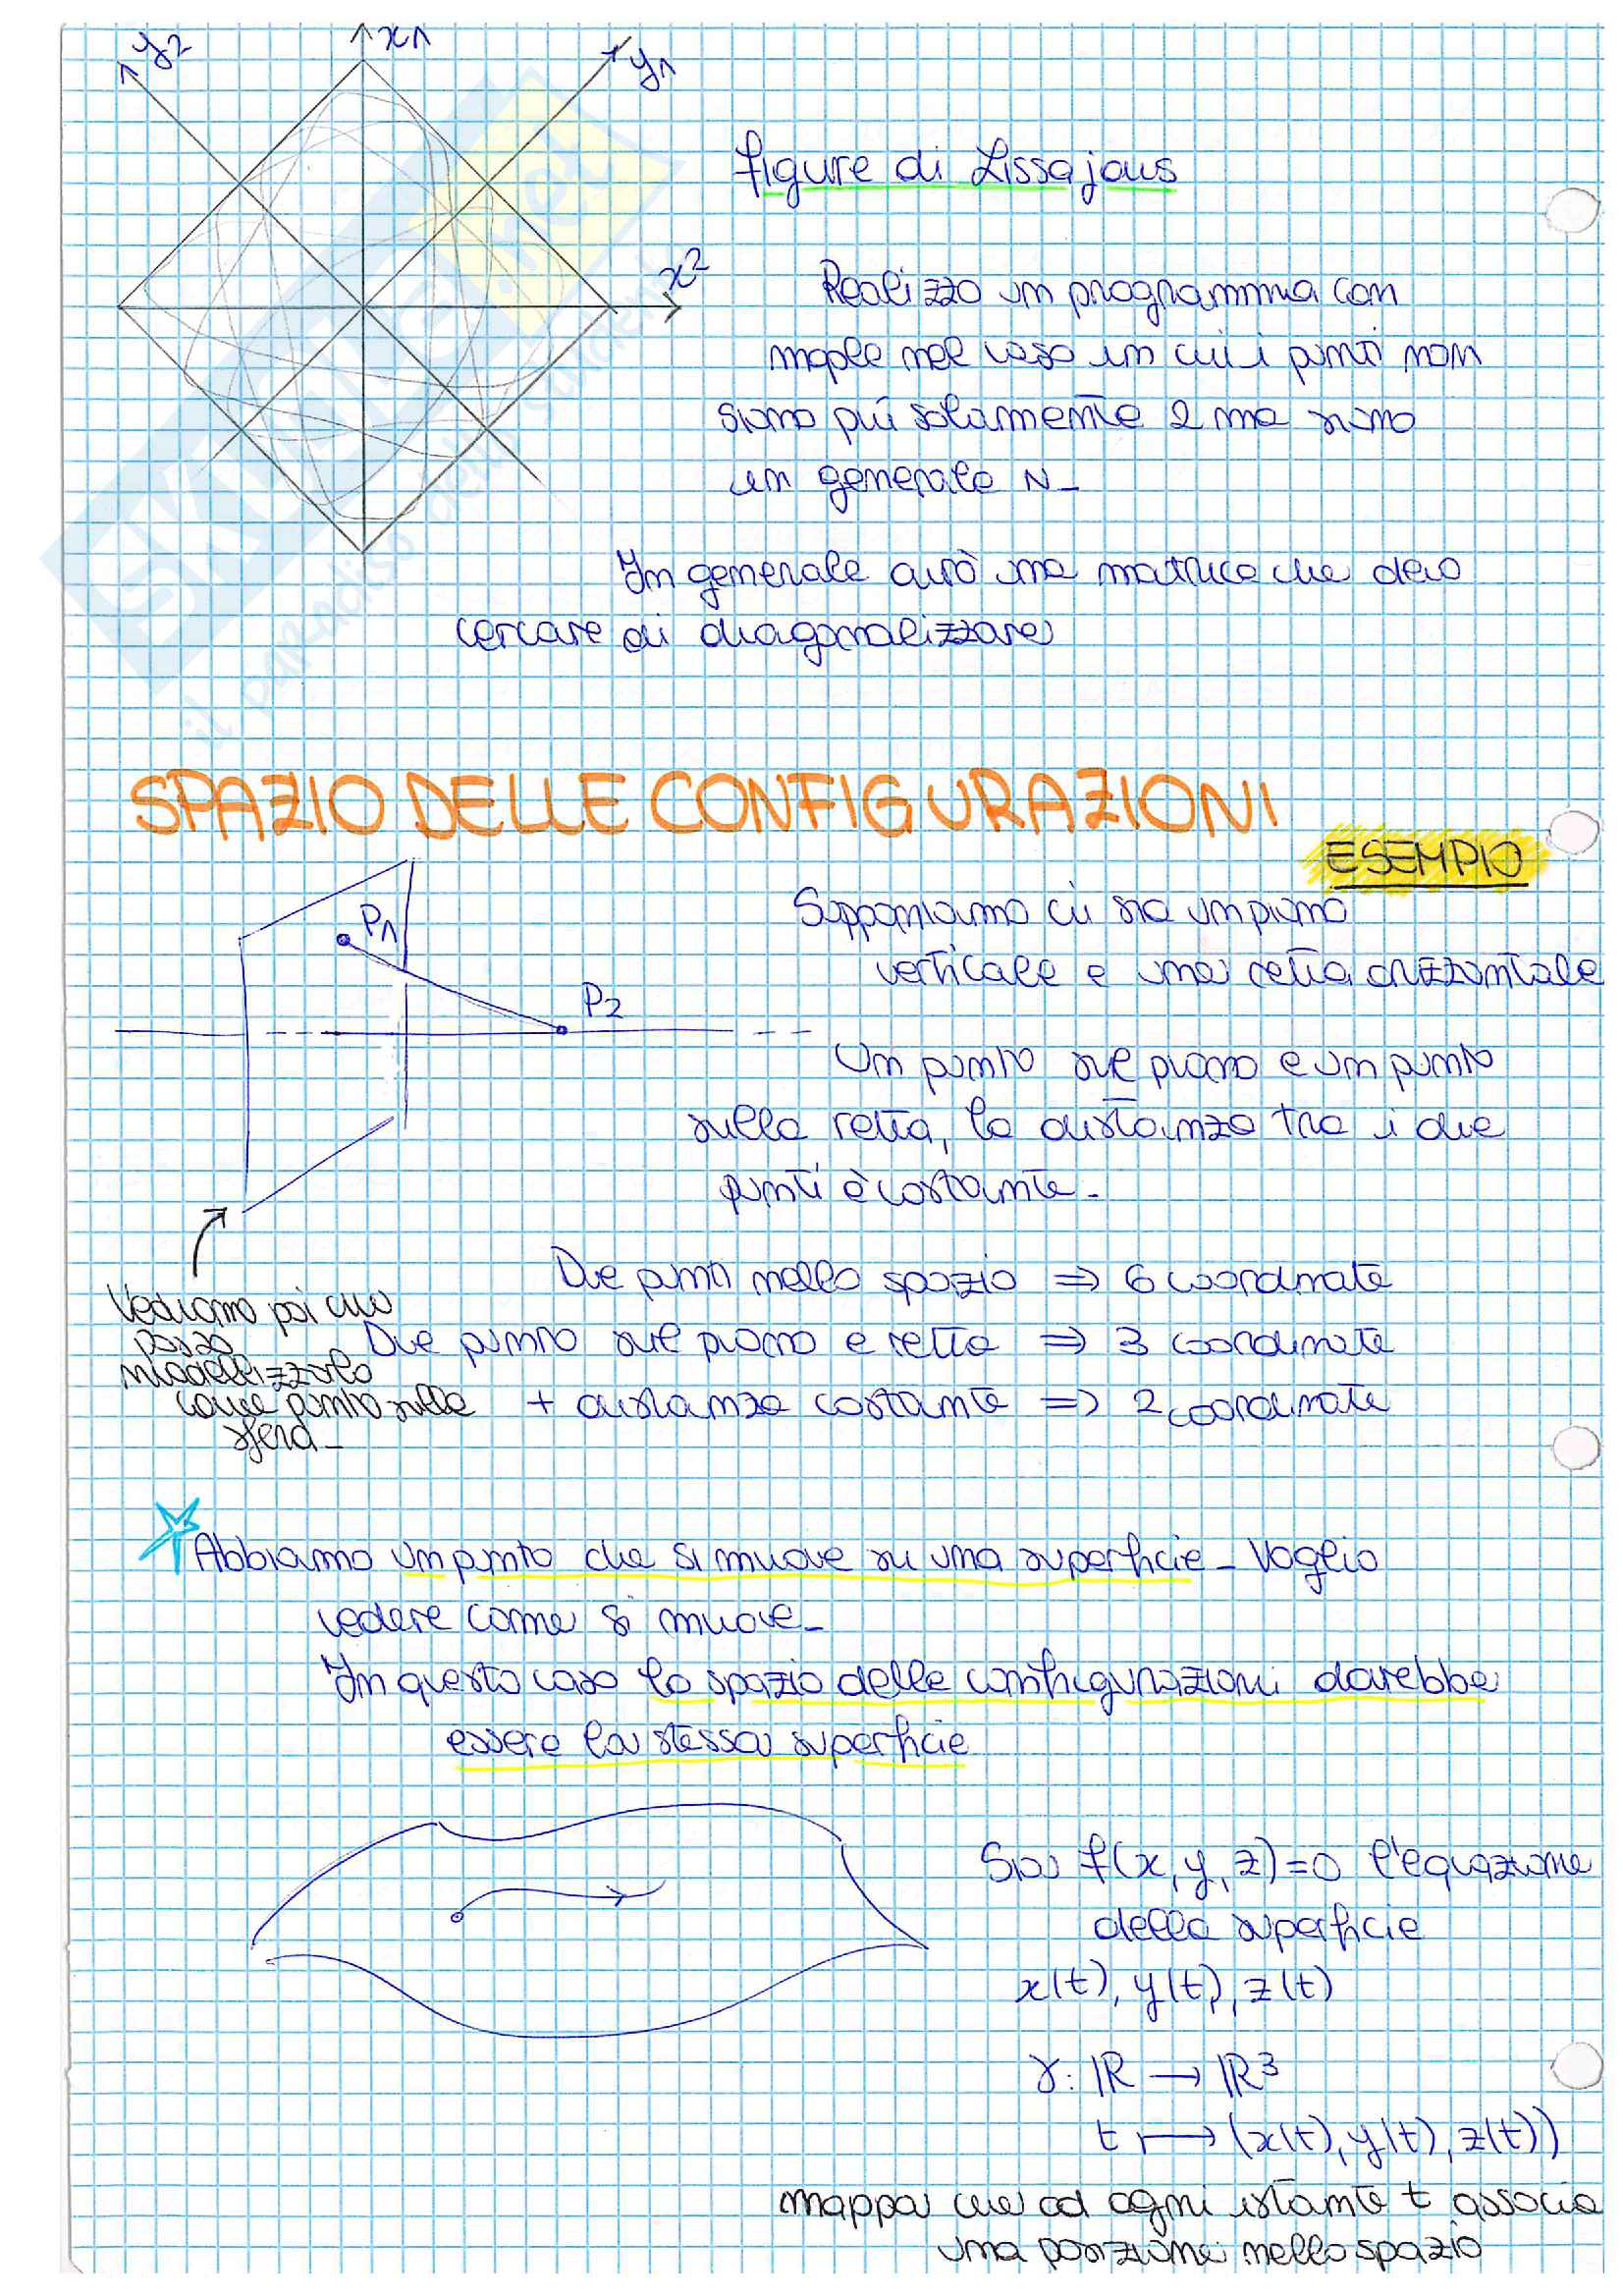 y2
x1
y1
figure di Lissajous
x2
Realizzo un programma con
maple nel caso in cui i punti non
siano più solamente 2 ma siano
un generale N_
In generale avrò una matrice che devo
cercare di diagonalizzare
SPAZIO DELLE CONFIGURAZIONI
ESEMPIO
Supponiamo ci sia un piano
verticale e una retta orizzontale
P1
P2
Un punto sul piano e un punto
sulla retta, la distanza tra i due
punti è costante_
Due punti nello spazio ⇒ 6 coordinate
Due punto sul piano e retta ⇒ 3 coordinate
+ distanza costante ⇒ 2 coordinate
Vediamo poi che
posso
modellizzarlo
come punto sulla
sfera_
Abbiamo un punto che si muove su una superficie_ Voglio
vedere come si muove_
In questo caso lo spazio delle configurazioni dovrebbe
essere la stessa superficie
Sia f(x,y,z)=0 l'equazione
della superficie
x(t), y(t), z(t)
γ: ℝ → ℝ³
t ↦ (x(t), y(t), z(t))
mappa che ad ogni istante t associa
una posizione nello spazio
SKUOLA.net
il paradiso dello studente